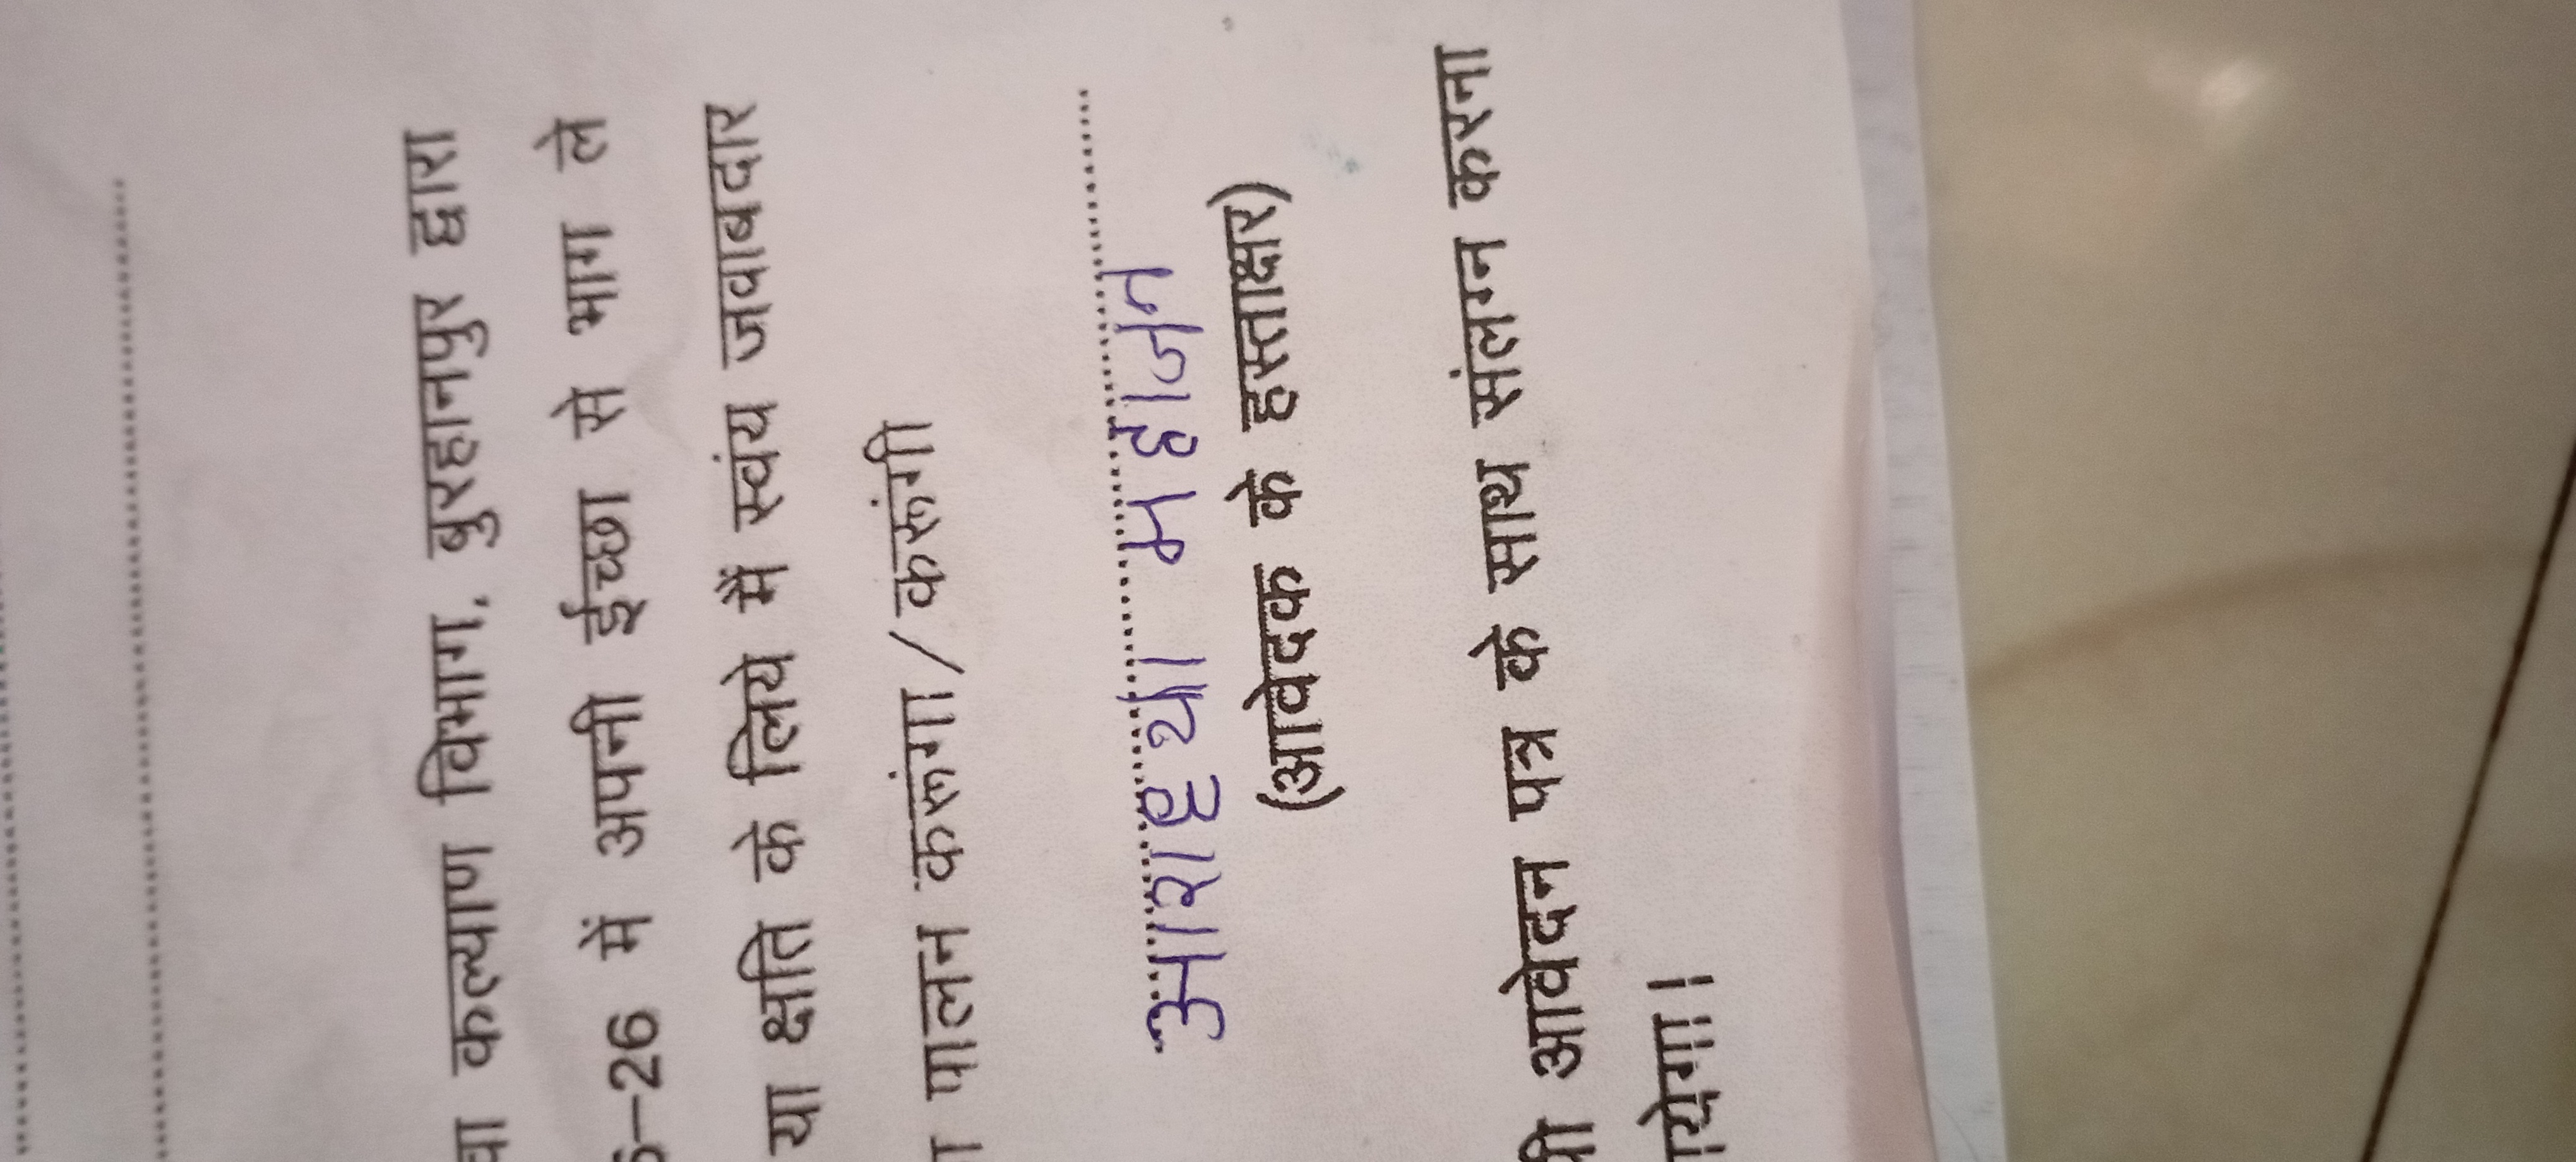 कल्याण विभाग, बुरहानपुर द्वारा
–26 में अपनी ईच्छा से भाग ले
या क्षति के लिये मैं स्वंय जवाबदार
पालन करूंगा/करूंगी
आराध्या महाजन
(आवेदक के हस्ताक्षर)
आवेदन पत्र के साथ संलग्न करना